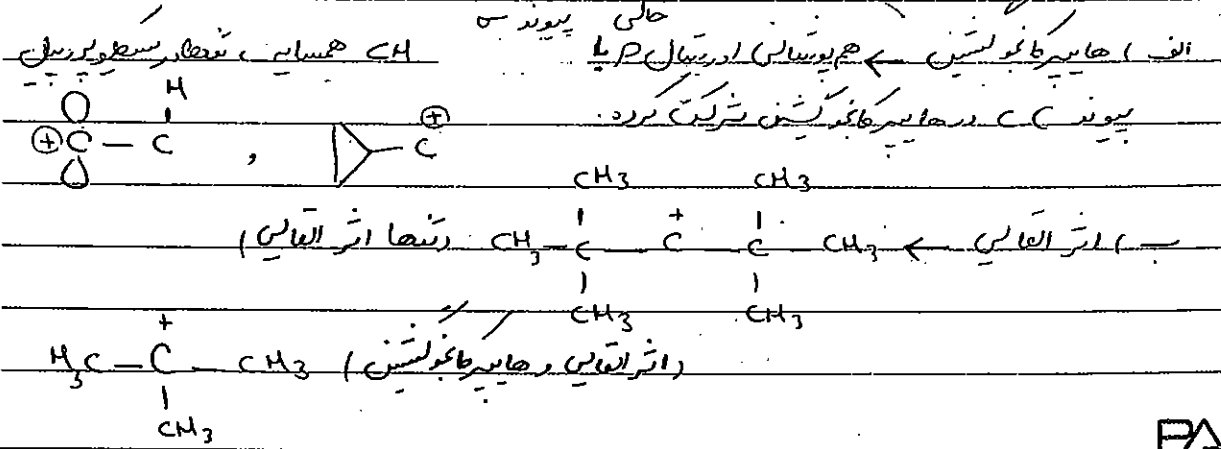 خالی پیوند σ
الف ) هایپرکانجوگیشن ← هم پوشانی اوربیتال p با CH همسایه ، تنها در سیکلوپروپیل
پیوند CC در هایپرکانجوگیشن شرکت کرده.
H
⊕C — C , ⊕
C
CH3 CH3
ب ) اثر القایی ← CH3 — C — C+ — C — CH3 (تنها اثر القایی)
CH3 CH3
+
H3C — C — CH3 (اثر القایی و هایپرکانجوگیشن)
CH3
PA